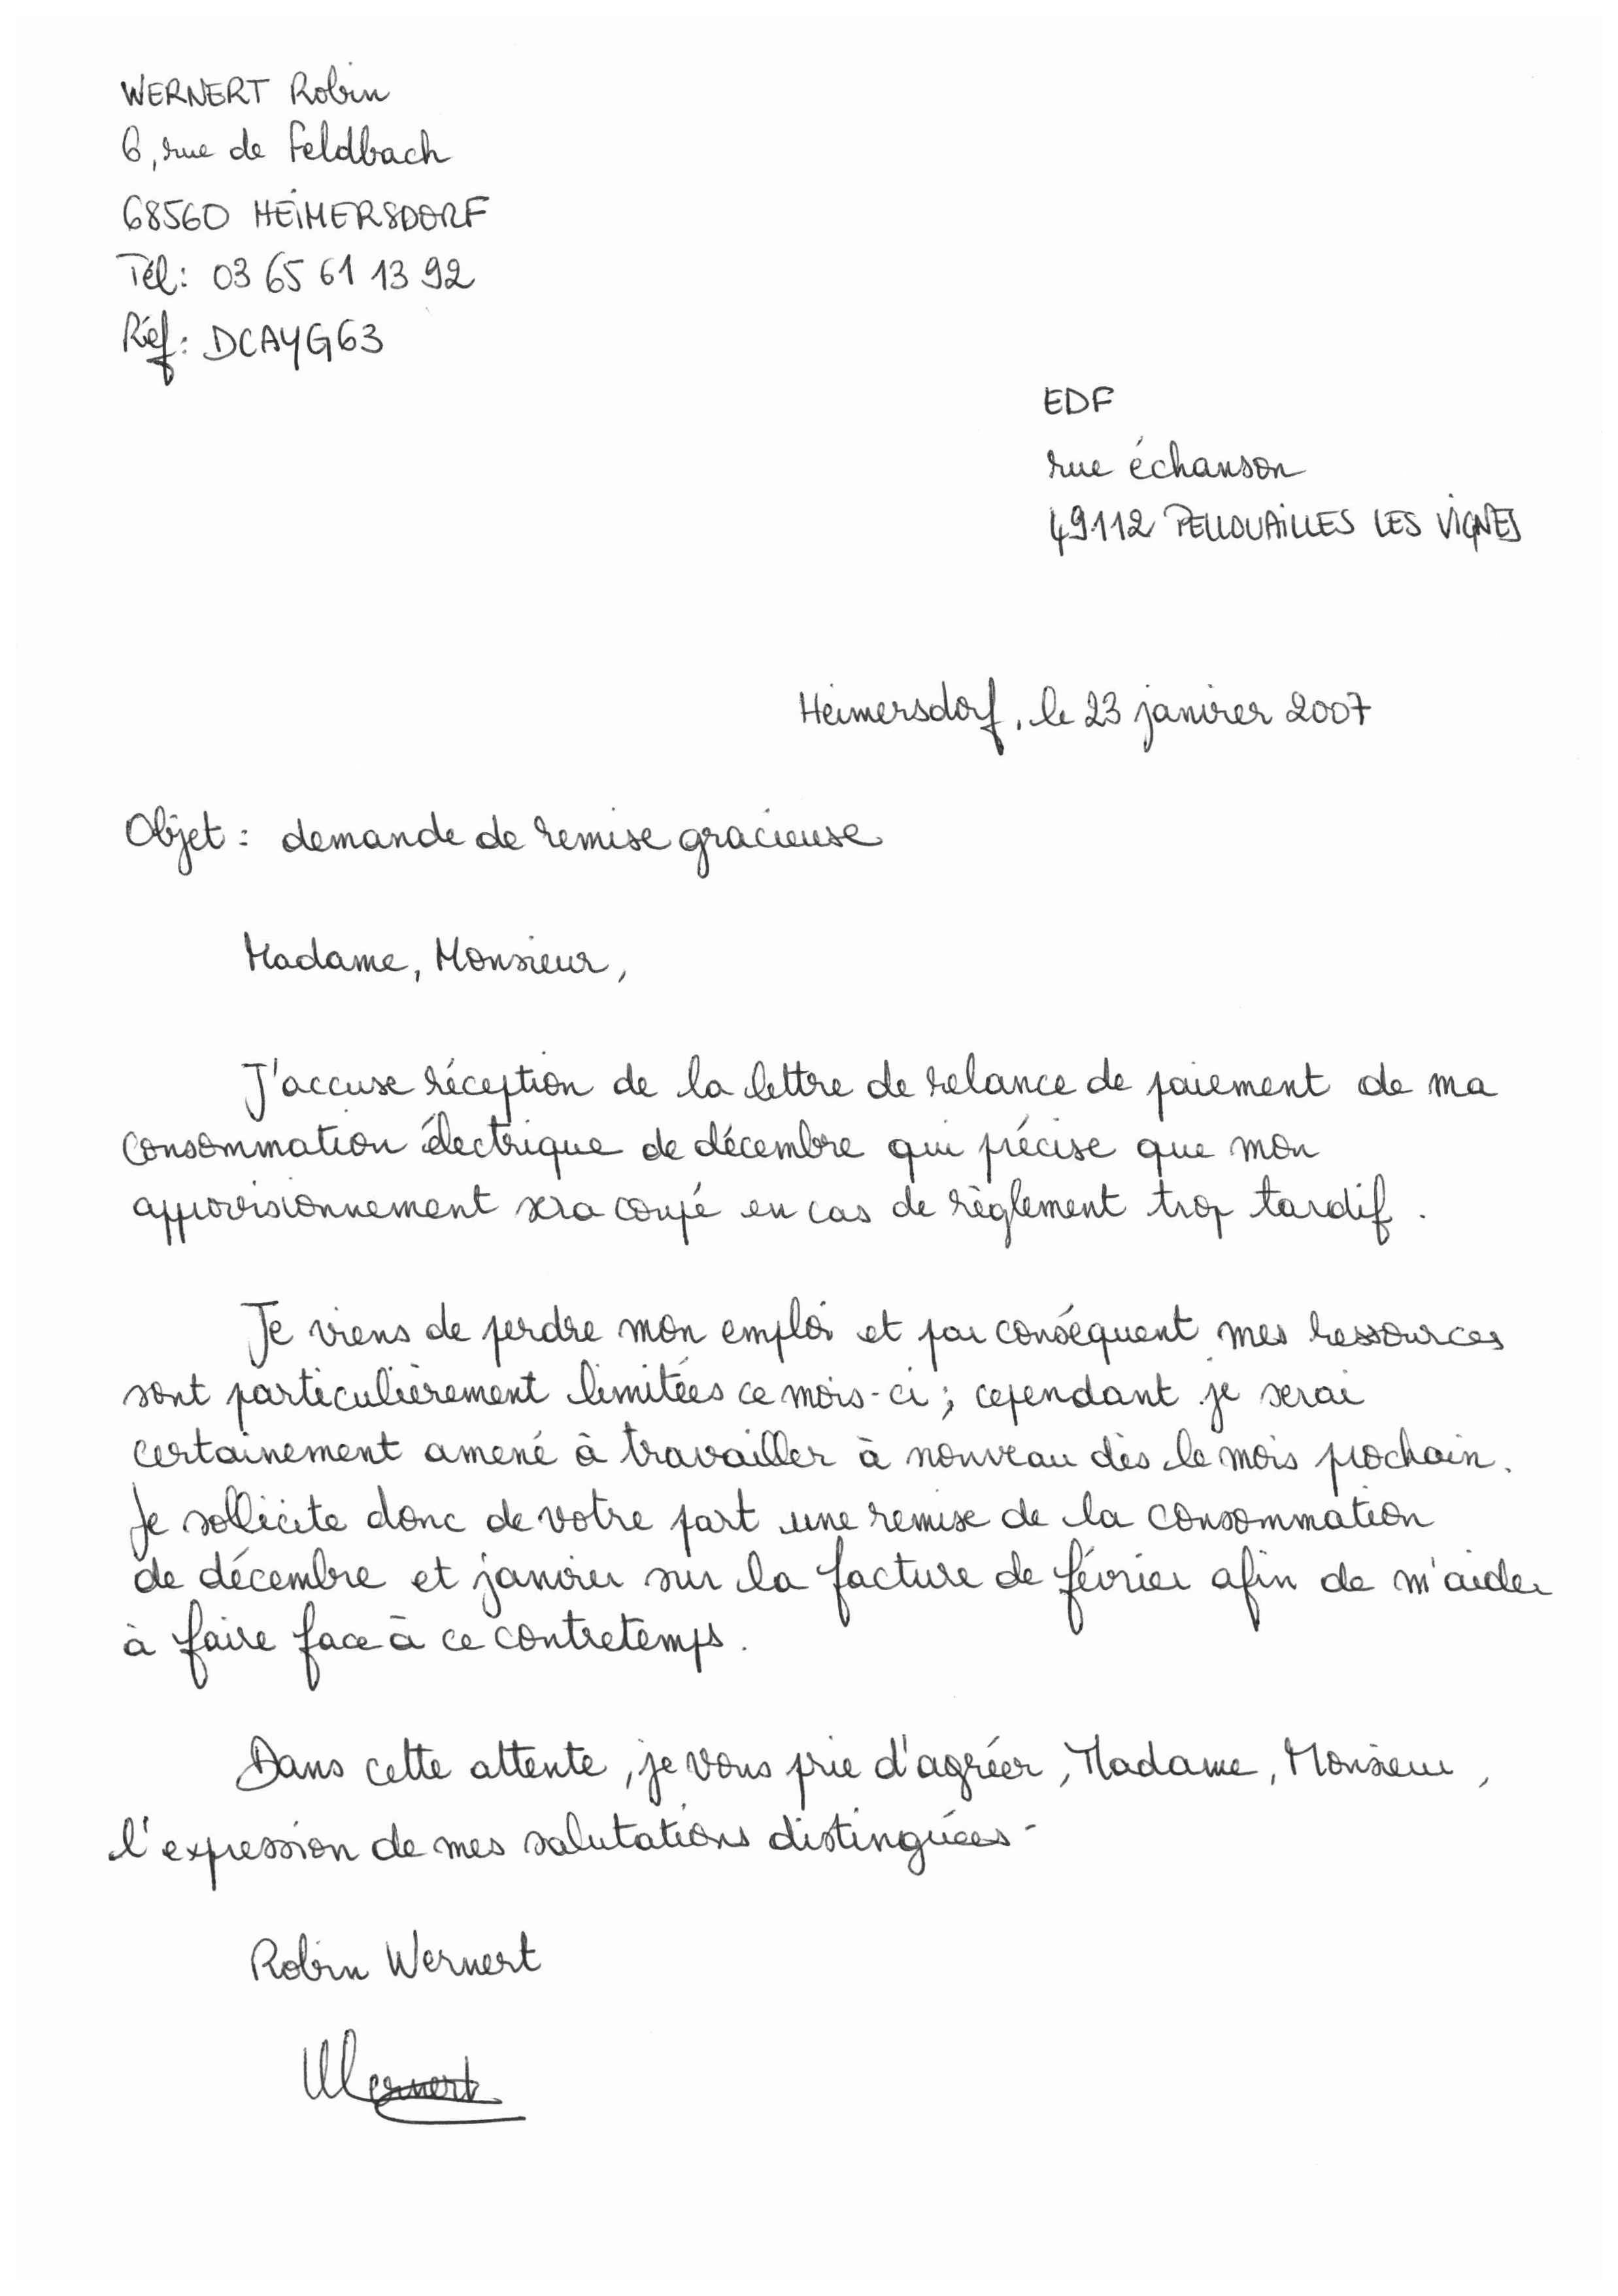 WERNERT Robin
6, rue de Feldbach
68560 HEIMERSDORF
Tél: 03 65 61 13 92
Réf: DCAYG63
EDF
rue échanson
49112 PELLOUAILLES LES VIGNES
Heimersdorf, le 23 janvier 2007
Objet : demande de remise gracieuse
Madame, Monsieur,
J'accuse réception de la lettre de relance de paiement de ma
consommation électrique de décembre qui précise que mon
approvisionnement sera coupé en cas de règlement trop tardif.
Je viens de perdre mon emploi et par conséquent mes ressources
sont particulièrement limitées ce mois-ci ; cependant je serai
certainement amené à travailler à nouveau dès le mois prochain.
Je sollicite donc de votre part une remise de la consommation
de décembre et janvier sur la facture de février afin de m'aider
à faire face à ce contretemps.
Dans cette attente, je vous prie d'agréer, Madame, Monsieur,
l'expression de mes salutations distinguées.
Robin Wernert
Wernert